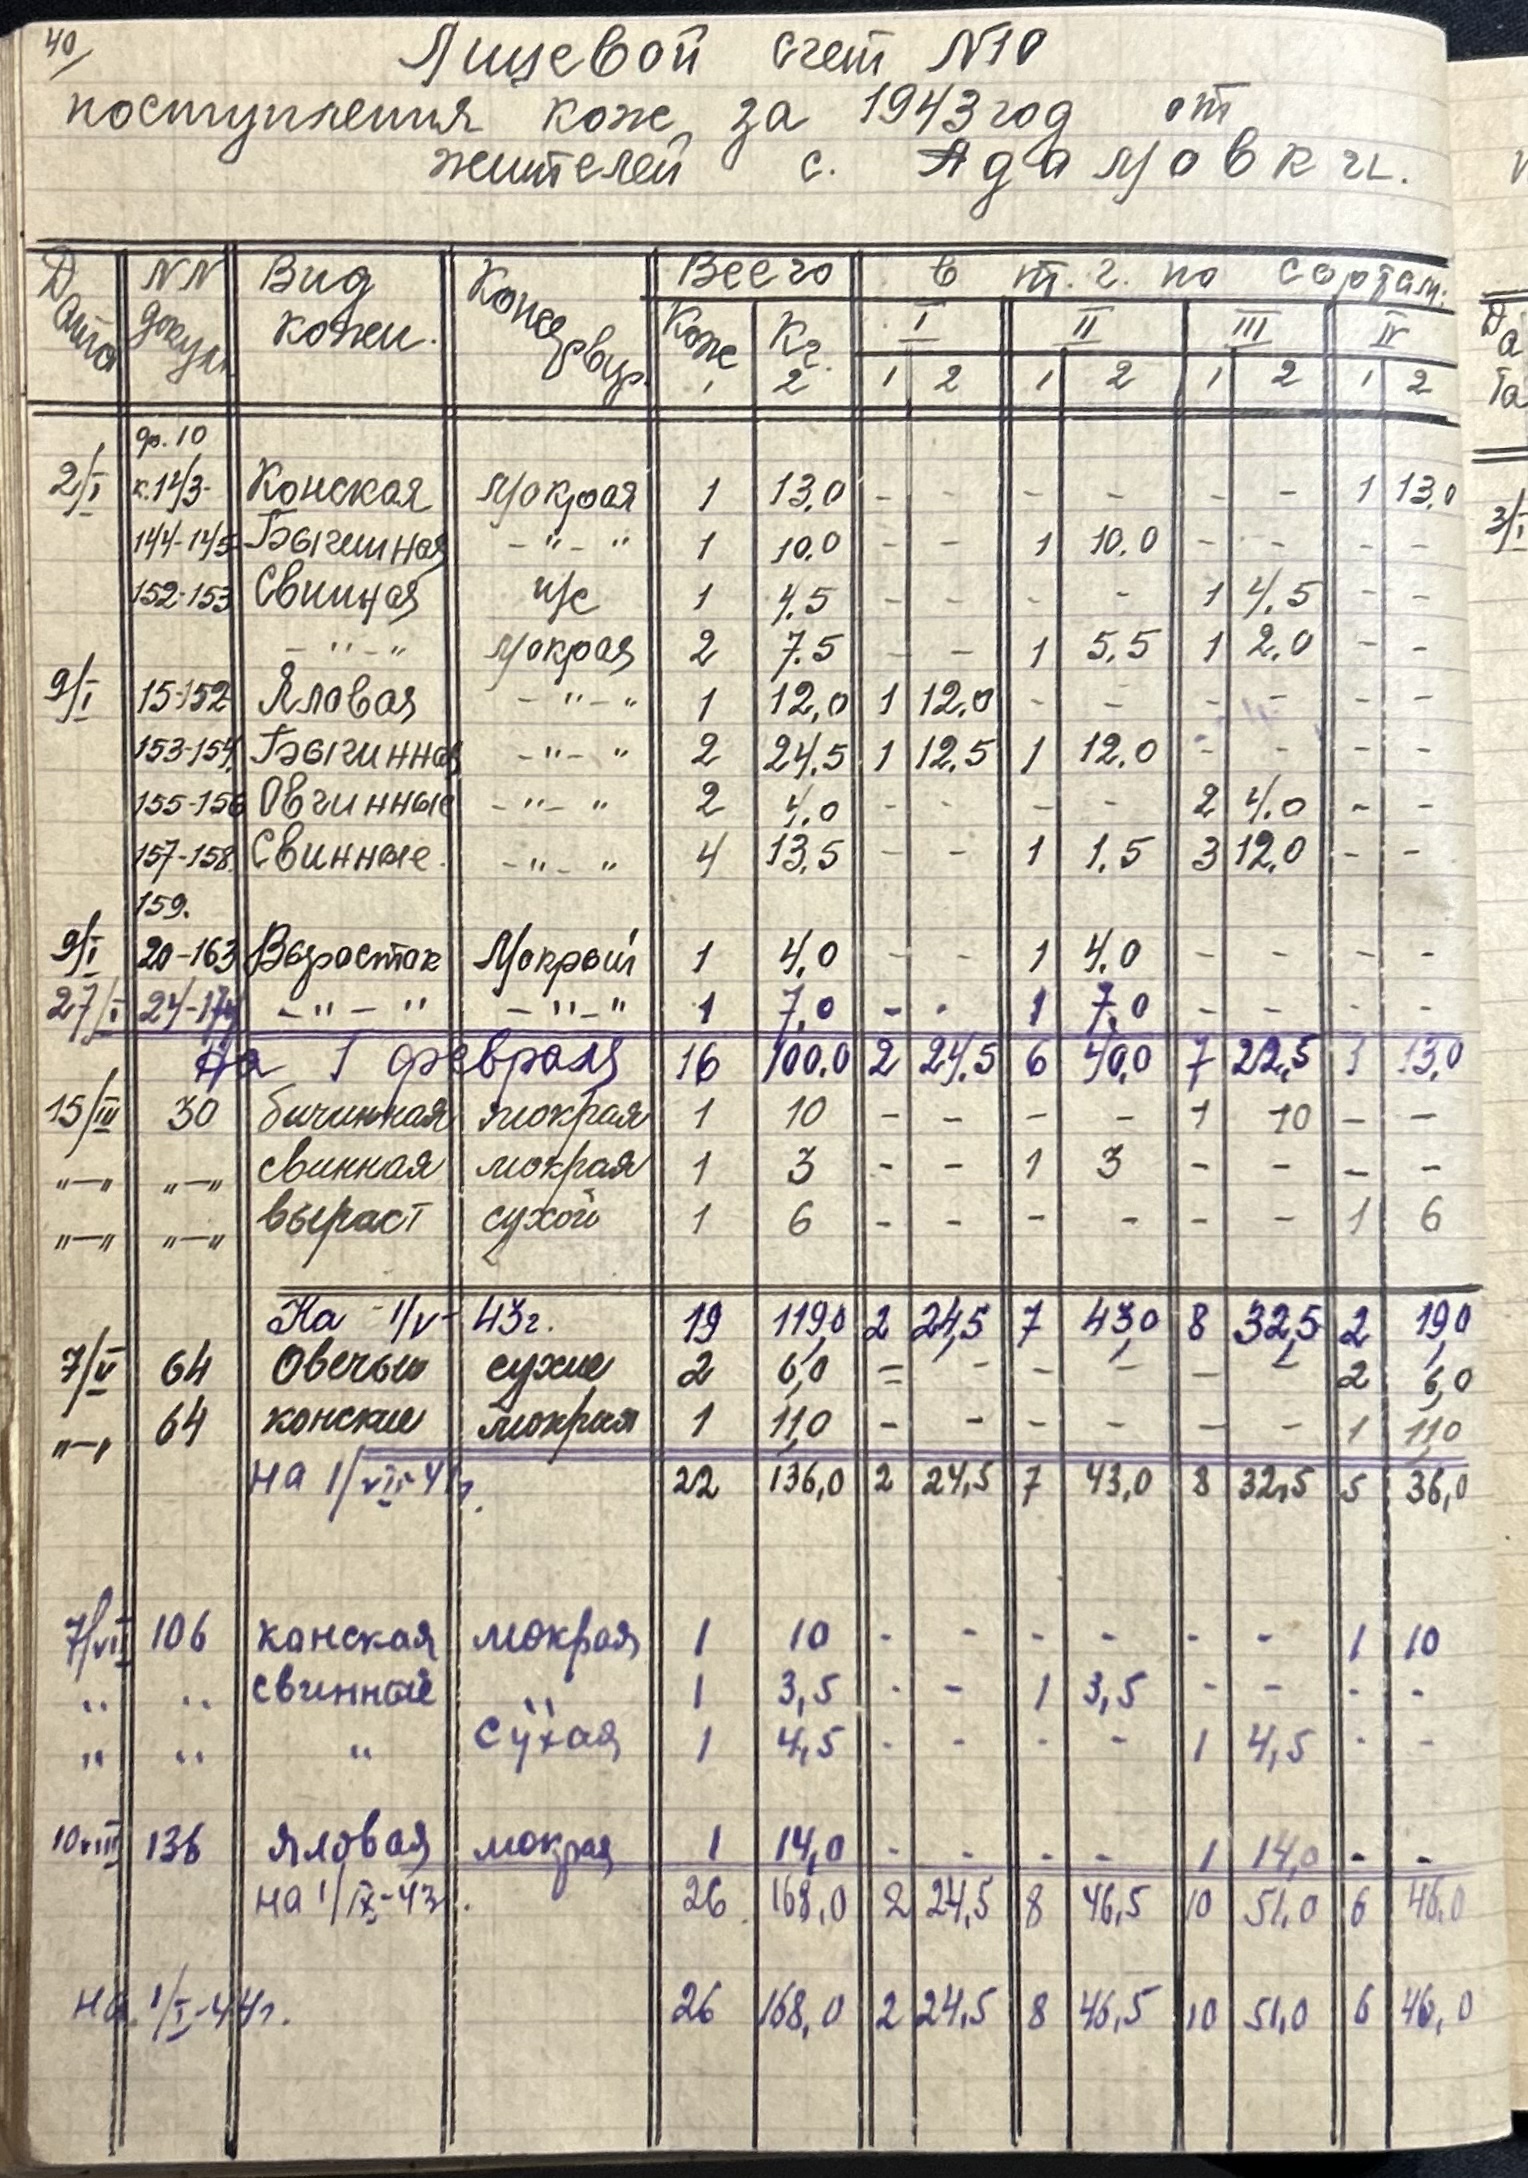 40/
Лицевой счет №10
поступления кож за 1943 год от
жителей с. Адамовки.
Дата NN докум. Вид кожи. Консервир. Всего в т. ч. по сортам:
Кож Кг. I II III IV
1 2 1 2 1 2 1 2 1 2
ф. 10
2/I к.143- Конская Мокрая 1 13,0 - - - - - - 1 13,0
144-145 Бычинная -"-" 1 10,0 - - 1 10,0 - - - -
152-153 Свинная п/с 1 4,5 - - - - 1 4,5 - -
-"-" Мокрая 2 7,5 - - 1 5,5 1 2,0 - -
9/I 15-152 Яловая -"-" 1 12,0 1 12,0 - - - - - -
153-154 Бычинная -"-" 2 24,5 1 12,5 1 12,0 - - - -
155-156 Овчинные -"-" 2 4,0 - - - - 2 4,0 - -
157-158. Свинные -"-" 4 13,5 - - 1 1,5 3 12,0 - -
159.
9/I 20-163 Выросток Мокрый 1 4,0 - - 1 4,0 - - - -
27/I 24-174 -"-" -"-" 1 7,0 - - 1 7,0 - - - -
На 1 февраля 16 100,0 2 24,5 6 40,0 7 22,5 1 13,0
15/III 30 бичинная мокрая 1 10 - - - - 1 10 - -
"—" "—" свинная мокрая 1 3 - - 1 3 - - - -
"—" "—" выраст сухой 1 6 - - - - - - 1 6
На 1/V-43г. 19 119,0 2 24,5 7 43,0 8 32,5 2 19,0
7/V 64 Овечьи сухие 2 6,0 = - - - - - 2 6,0
"—" 64 конские мокрая 1 11,0 - - - - - - 1 11,0
на 1/VII-4 г. 22 136,0 2 24,5 7 43,0 8 32,5 5 36,0
7/VII 106 конская мокрая 1 10 - - - - - - 1 10
" " свинные " 1 3,5 - - 1 3,5 - - - -
" " " сухая 1 4,5 - - - - 1 4,5 - -
10VIII 136 Яловая мокрая 1 14,0 - - - - 1 14,0 - -
на 1/IX-43г. 26 168,0 2 24,5 8 46,5 10 51,0 6 46,0
на 1/I-44г. 26 168,0 2 24,5 8 46,5 10 51,0 6 46,0
Да
та
3/I